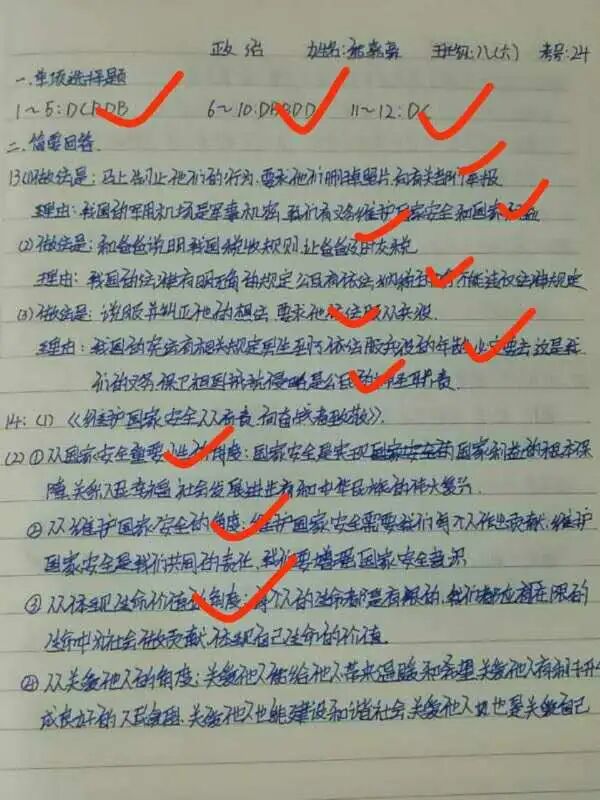 政治 姓名: 班级:八(六) 考号:24
一.单项选择题
1~5:DCBDB 6~10:DBBDD 11~12:DC
二.简要回答
13(1)做法是:马上制止他们的行为,要求他们删掉照片,向有关部门举报
理由:我国的军用机场是军事机密,我们有义务维护国家安全和国家利益
(2)做法是:和爸爸说明我国税收规则,让爸爸及时去税
理由:我国的法律有明确的规定公民有依法纳税的不能违反法律规定
(3)做法是:说服并纠正他的想法,要求他依法服从兵役.
理由:我国的宪法有相关规定男生至阿依法服兵役的年龄必定要去这是我
们的义务.保卫祖国抵抗侵略是公民的神圣职责.
14:(1)《维护国家安全人人有责,向奋战者致敬》.
(2)①从国家安全重要性的角度:国家安全是实现国家安全的国家利益的根本保
障,关系人民幸福,社会发展进步有和中华民族的伟大复兴.
②从维护国家安全的角度:维护国家安全需要我们每个人作出贡献,维护
国家安全是我们共同的责任,我们要增强国家安全意识
③从体现生命价值的角度:每个人的生命都是有限的,我们都应有在限的
生命中为社会做贡献,体现自己生命的价值.
④从关爱他人的角度:关爱他人能给他人带来温暖和希望,关爱他人有利于形
成良好的人际氛围,关爱他人也能建设和谐社会,关爱他人也是关爱自己